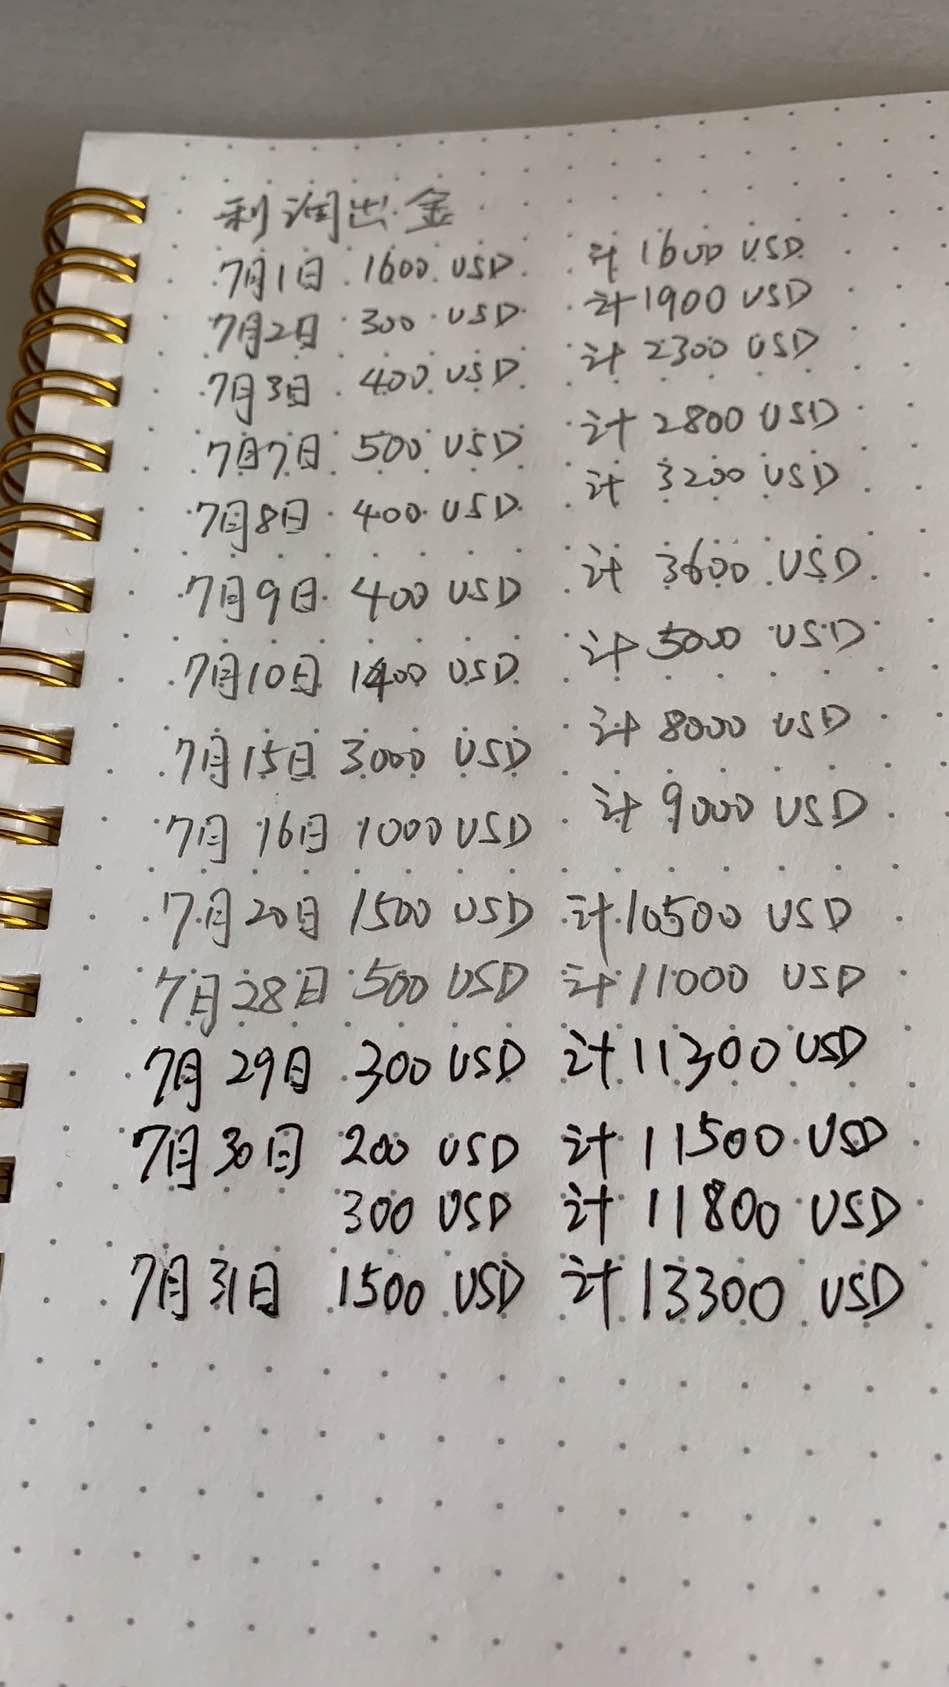 利润出金
7月1日 1600 USD 计1600 USD
7月2日 300 USD 计1900 USD
7月3日 400 USD 计2300 USD
7月7日 500 USD 计2800 USD
7月8日 400 USD 计3200 USD
7月9日 400 USD 计3600 USD
7月10日 1400 USD 计5000 USD
7月15日 3000 USD 计8000 USD
7月16日 1000 USD 计9000 USD
7月20日 1500 USD 计10500 USD
7月28日 500 USD 计11000 USD
7月29日 300 USD 计11300 USD
7月30日 200 USD 计11500 USD
300 USD 计11800 USD
7月31日 1500 USD 计13300 USD